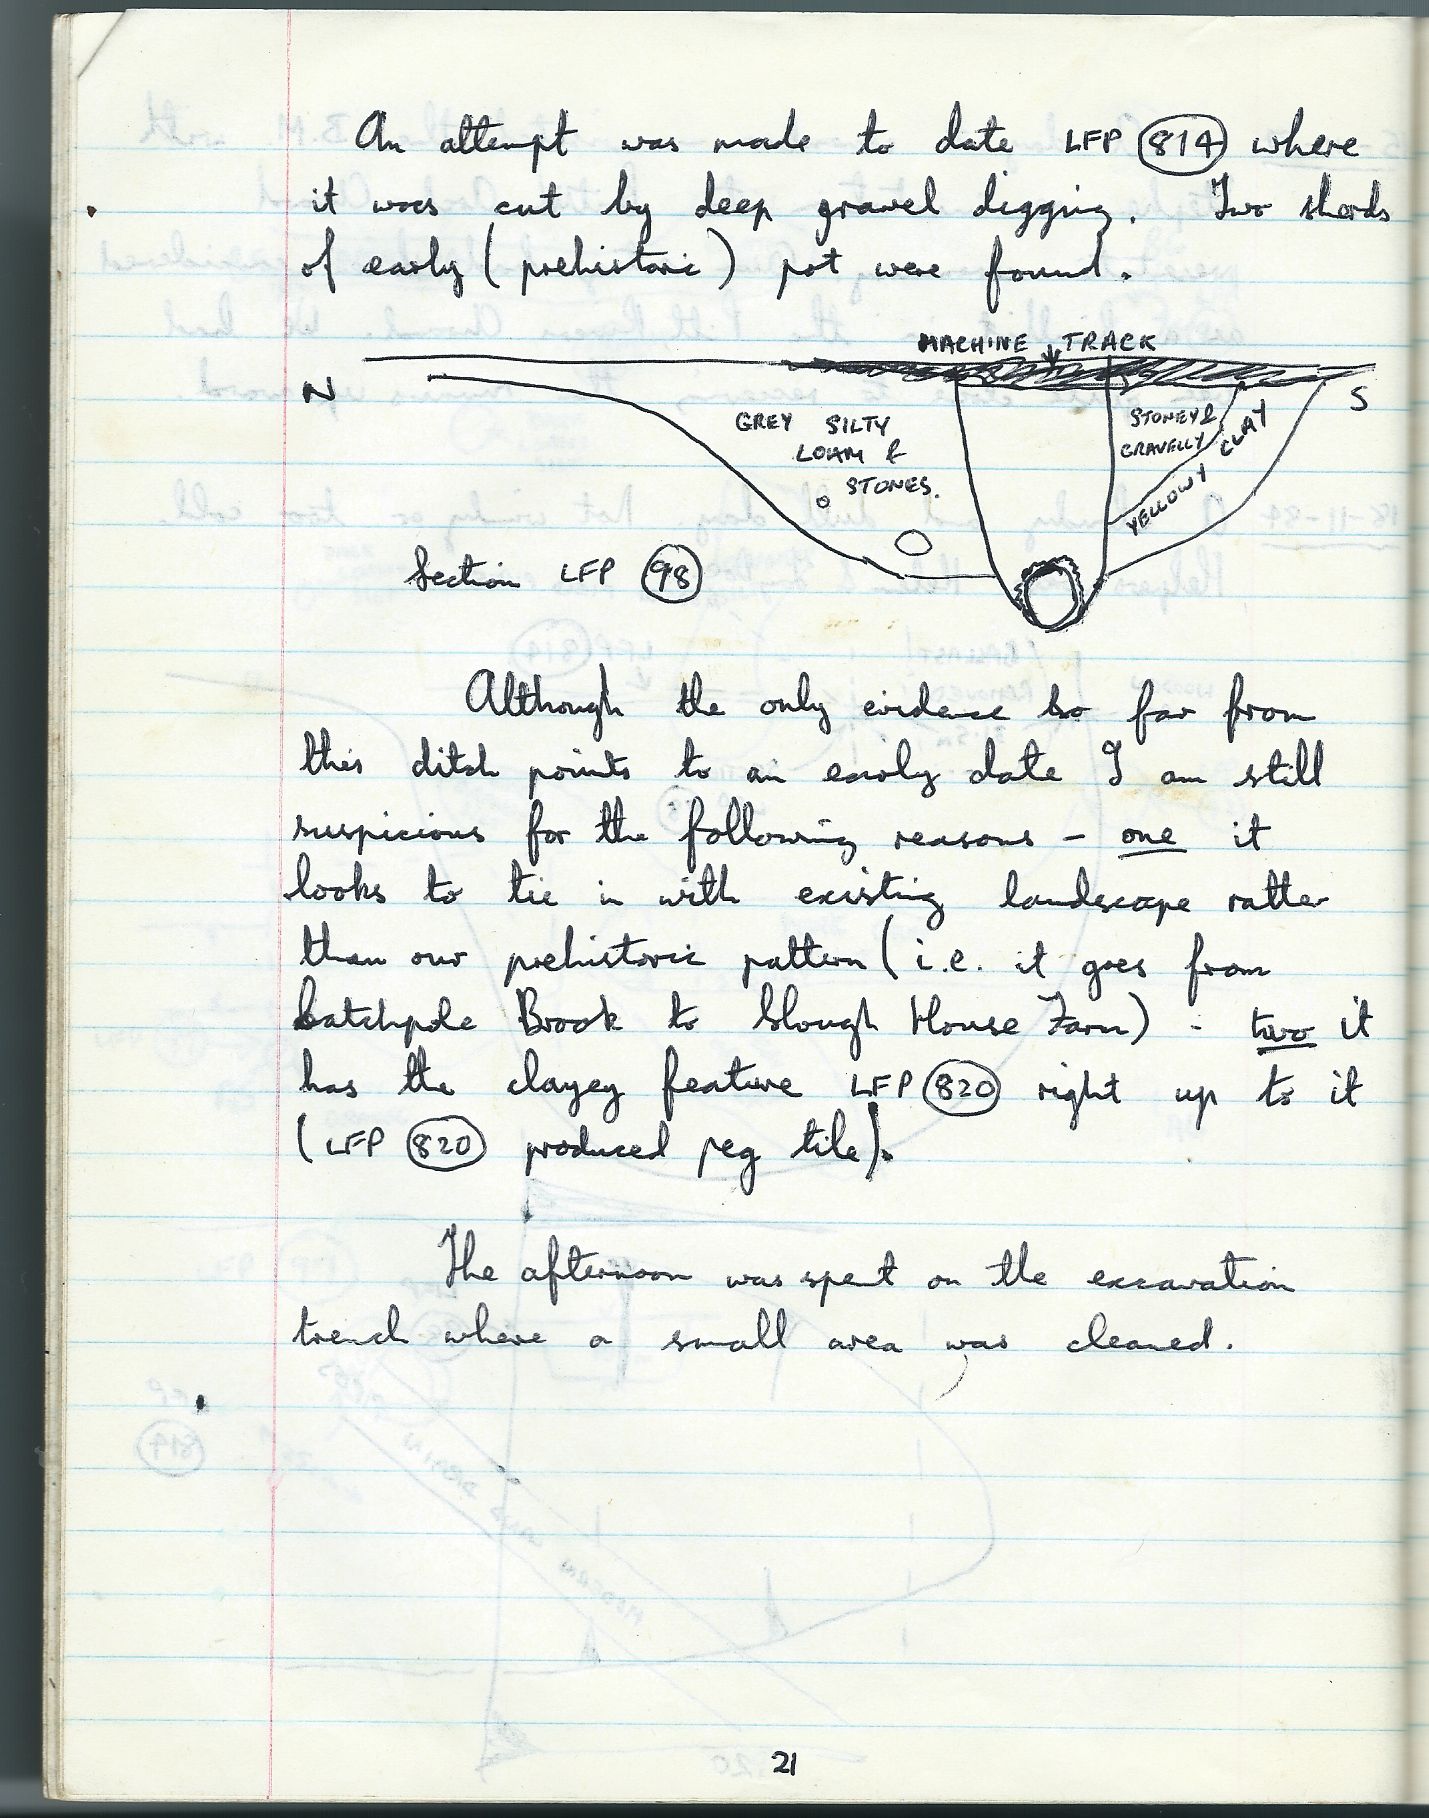 An attempt was made to date LFP 814 where
it was cut by deep gravel digging. Two sherds
of early (prehistoric) pot were found.
MACHINE TRACK
N
S
GREY SILTY
LOAM &
STONES.
STONEY &
GRAVELLY
YELLOWY CLAY
Section LFP 98
Although the only evidence so far from
this ditch points to an early date I am still
suspicious for the following reasons - one it
looks to tie in with existing landscape rather
than our prehistoric pattern (i.e. it goes from
Catchpole Brook to Slough House Farm) - two it
has the clayey feature LFP 820 right up to it
(LFP 820 produced peg tile).
The afternoon was spent on the excavation
trench where a small area was cleaned.
21